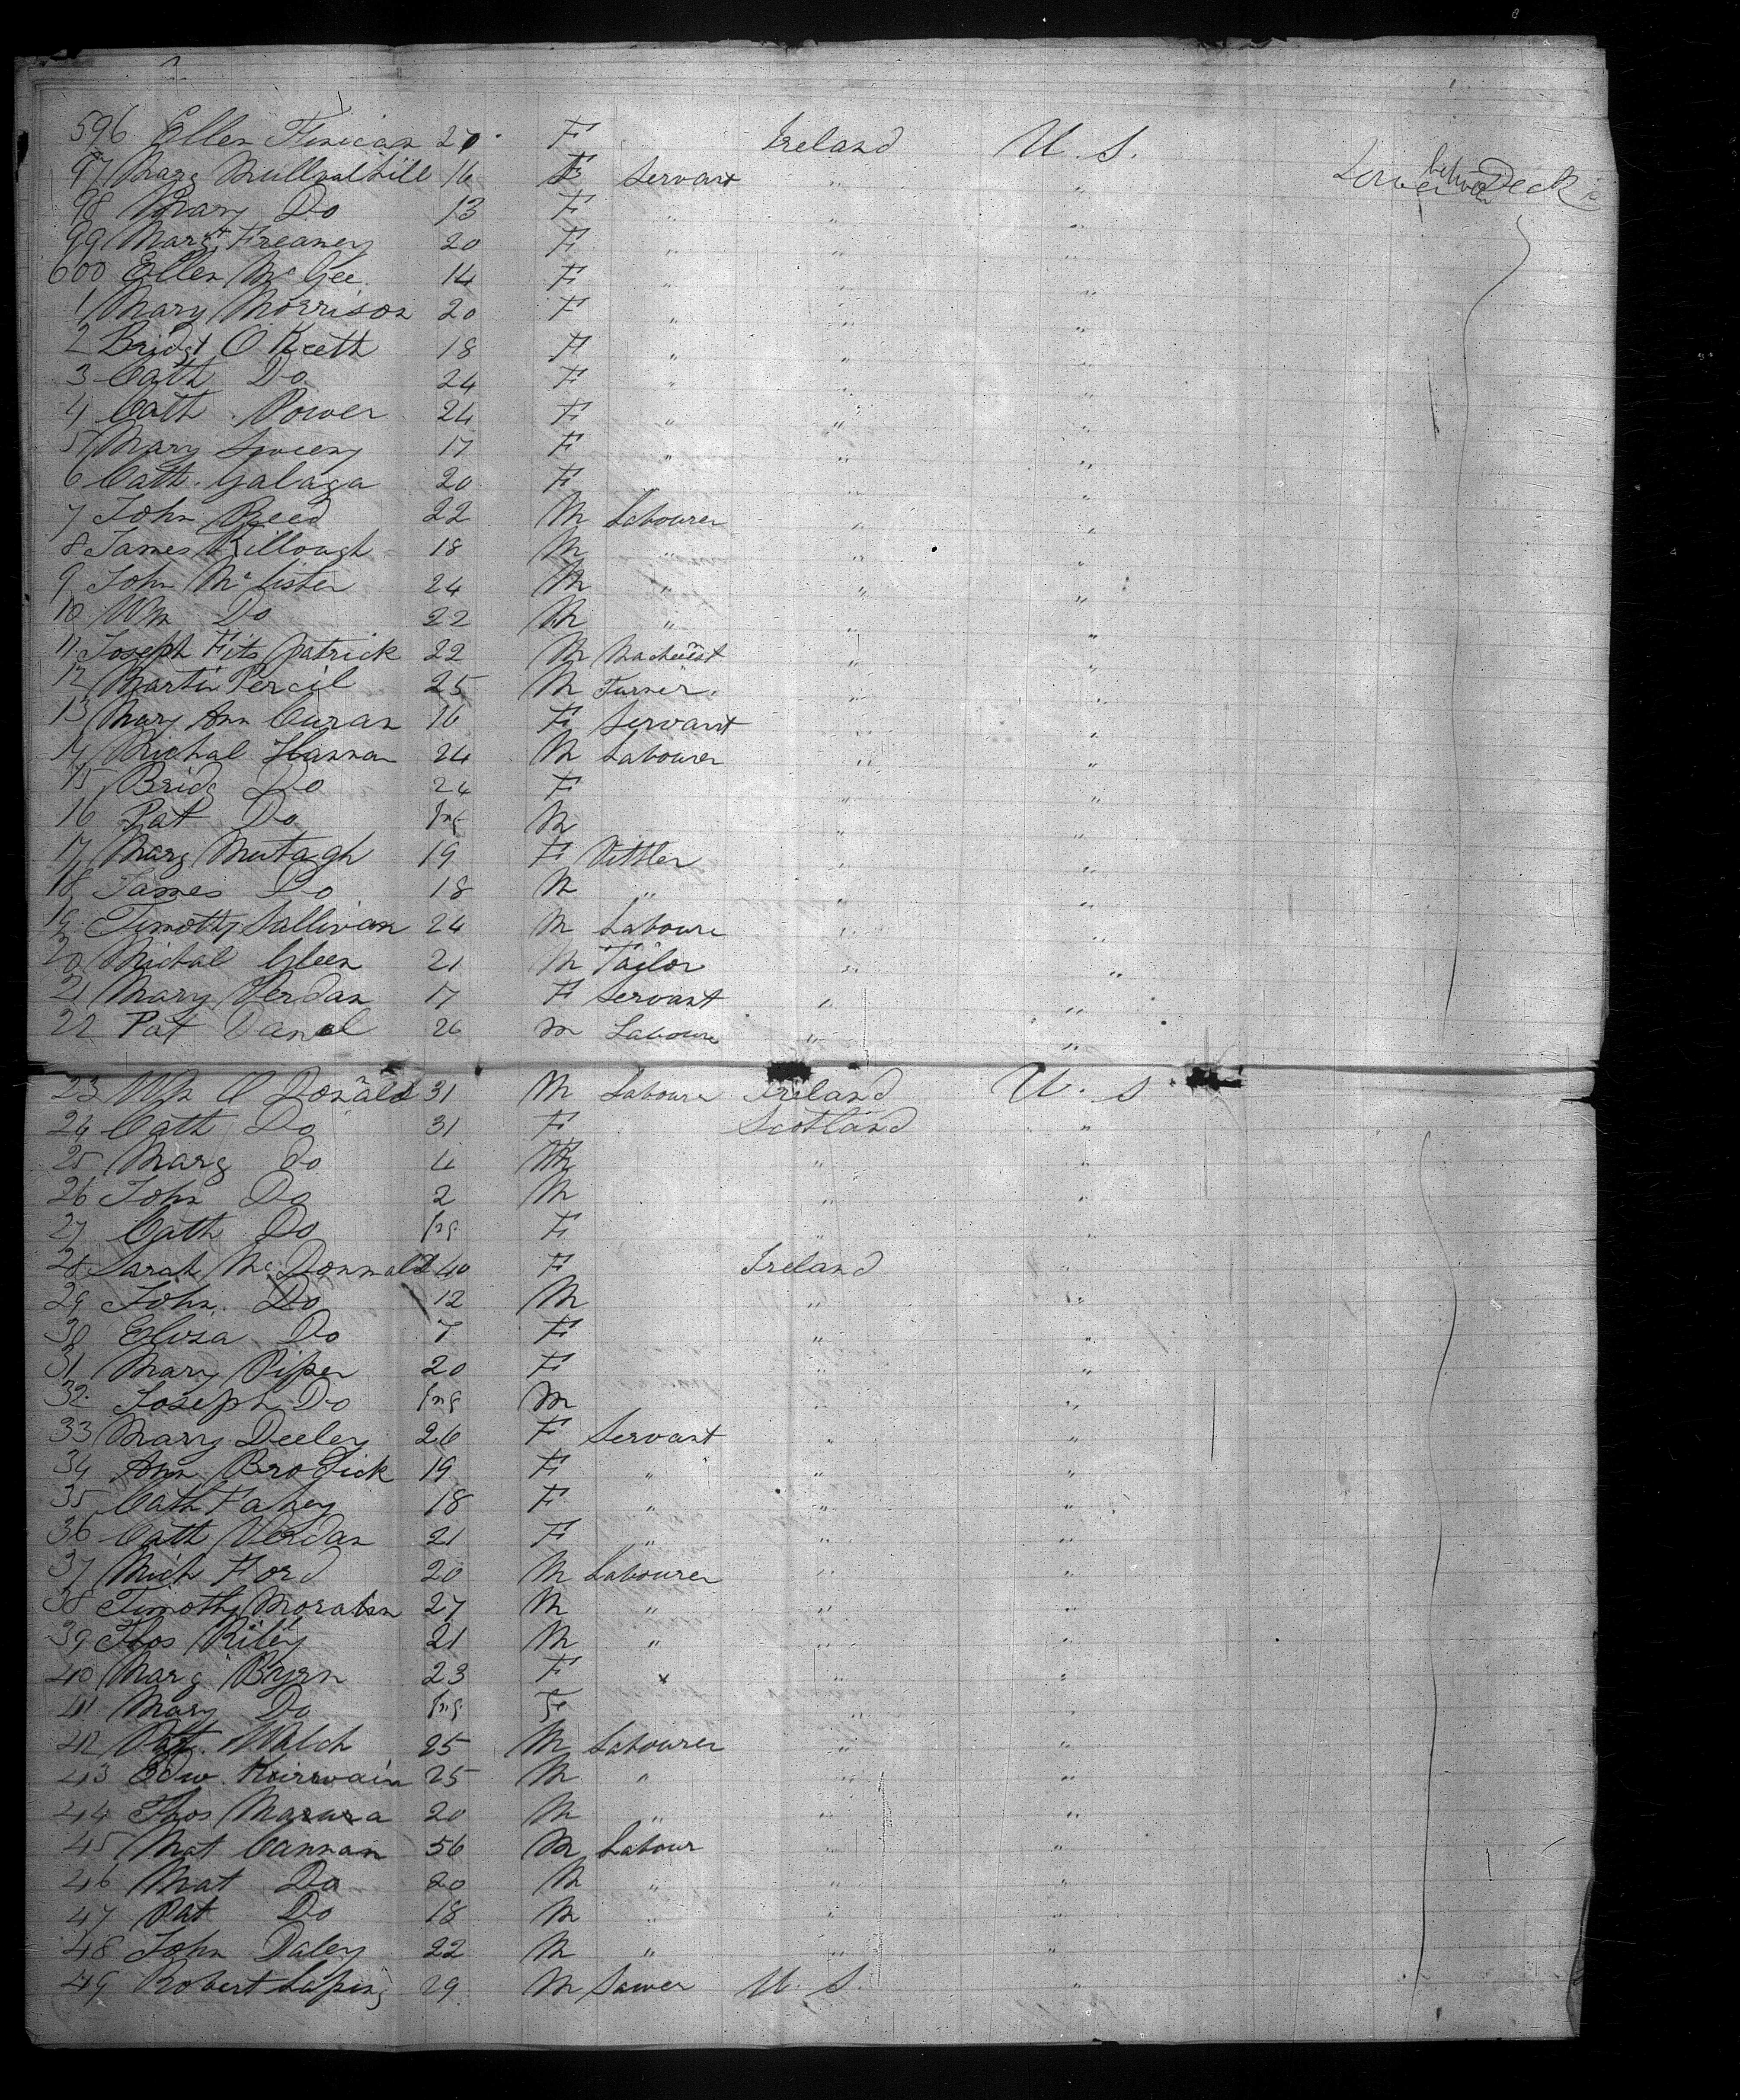 596 Ellen Finican 27 F Ireland U. S.
97 Marg Mullvalhill 16 F Servant " " Lower between Deck
98 Mary Do 13 F " " "
99 Margt Freaney 20 F " " "
600 Ellen Mc Gee 14 F " " "
1 Mary Morrison 20 F " " "
2 Bridgt O Keeth 18 F " " "
3 Cath Do 24 F " " "
4 Cath Power 24 F " " "
5 Mary Sweeny 17 F " " "
6 Cath. Galaga 20 F " "
7 John Reed 22 M Labourer " "
8 James Killough 18 M " " "
9 John Mc Lister 24 M " " "
10 Wm Do 22 M " " "
11 Joseph Fitspatrick 22 M Machiest " "
12 Martin Percil 25 M Turner. " "
13 Mary Ann Curan 16 F Servant " "
14 Michal Hannan 24 M Labourer " "
15 Bridg Do 24 F " "
16 Pat Do Inf M " "
17 Marg Mutagh 19 F Vittler " "
18 James Do 18 M " " "
19 Timothy Sullivan 24 M Laboure " "
20 Michal Gleen 21 M Taylor " "
21 Mary Verdan 17 F Servant " "
22 Pat Danel 26 M Laboure " "
23 Wm O Donald 31 M Laboure Ireland U. S
24 Cath Do 31 F Scotland "
25 Marg Do 4 " "
26 John Do 2 M " "
27 Cath Do Inf F " "
28 Sarah Mc Donnald 40 F Ireland "
29 John. Do 12 M " "
30 Elisa Do 7 F " "
31 Mary Piper 20 F " "
32 Joseph Do Inf M " "
33 Marry Deeley 26 F Servant " "
34 Ann Brodick 19 F " " "
35 Cath Fahey 18 F " " "
36 Cath Verdan 21 F " " "
37 Mich Ford 20 M Labourer " "
38 Timothy 27 M " " "
39 Thos Riley 21 M " " "
40 Marg Byrn 23 F x " "
41 Mary Do Inf F " "
42 Pat. Walch 25 M Labourer " "
43 Edw. Kirrwain 25 M " " "
44 Thos Marura 20 M " " "
45 Mat Cannan 56 M Labour " "
46 Mat Do 20 M " " "
47 Pat Do 18 M " " "
48 John Daley 22 M " " "
49 Robert Laping 29 M Sawer U. S. "